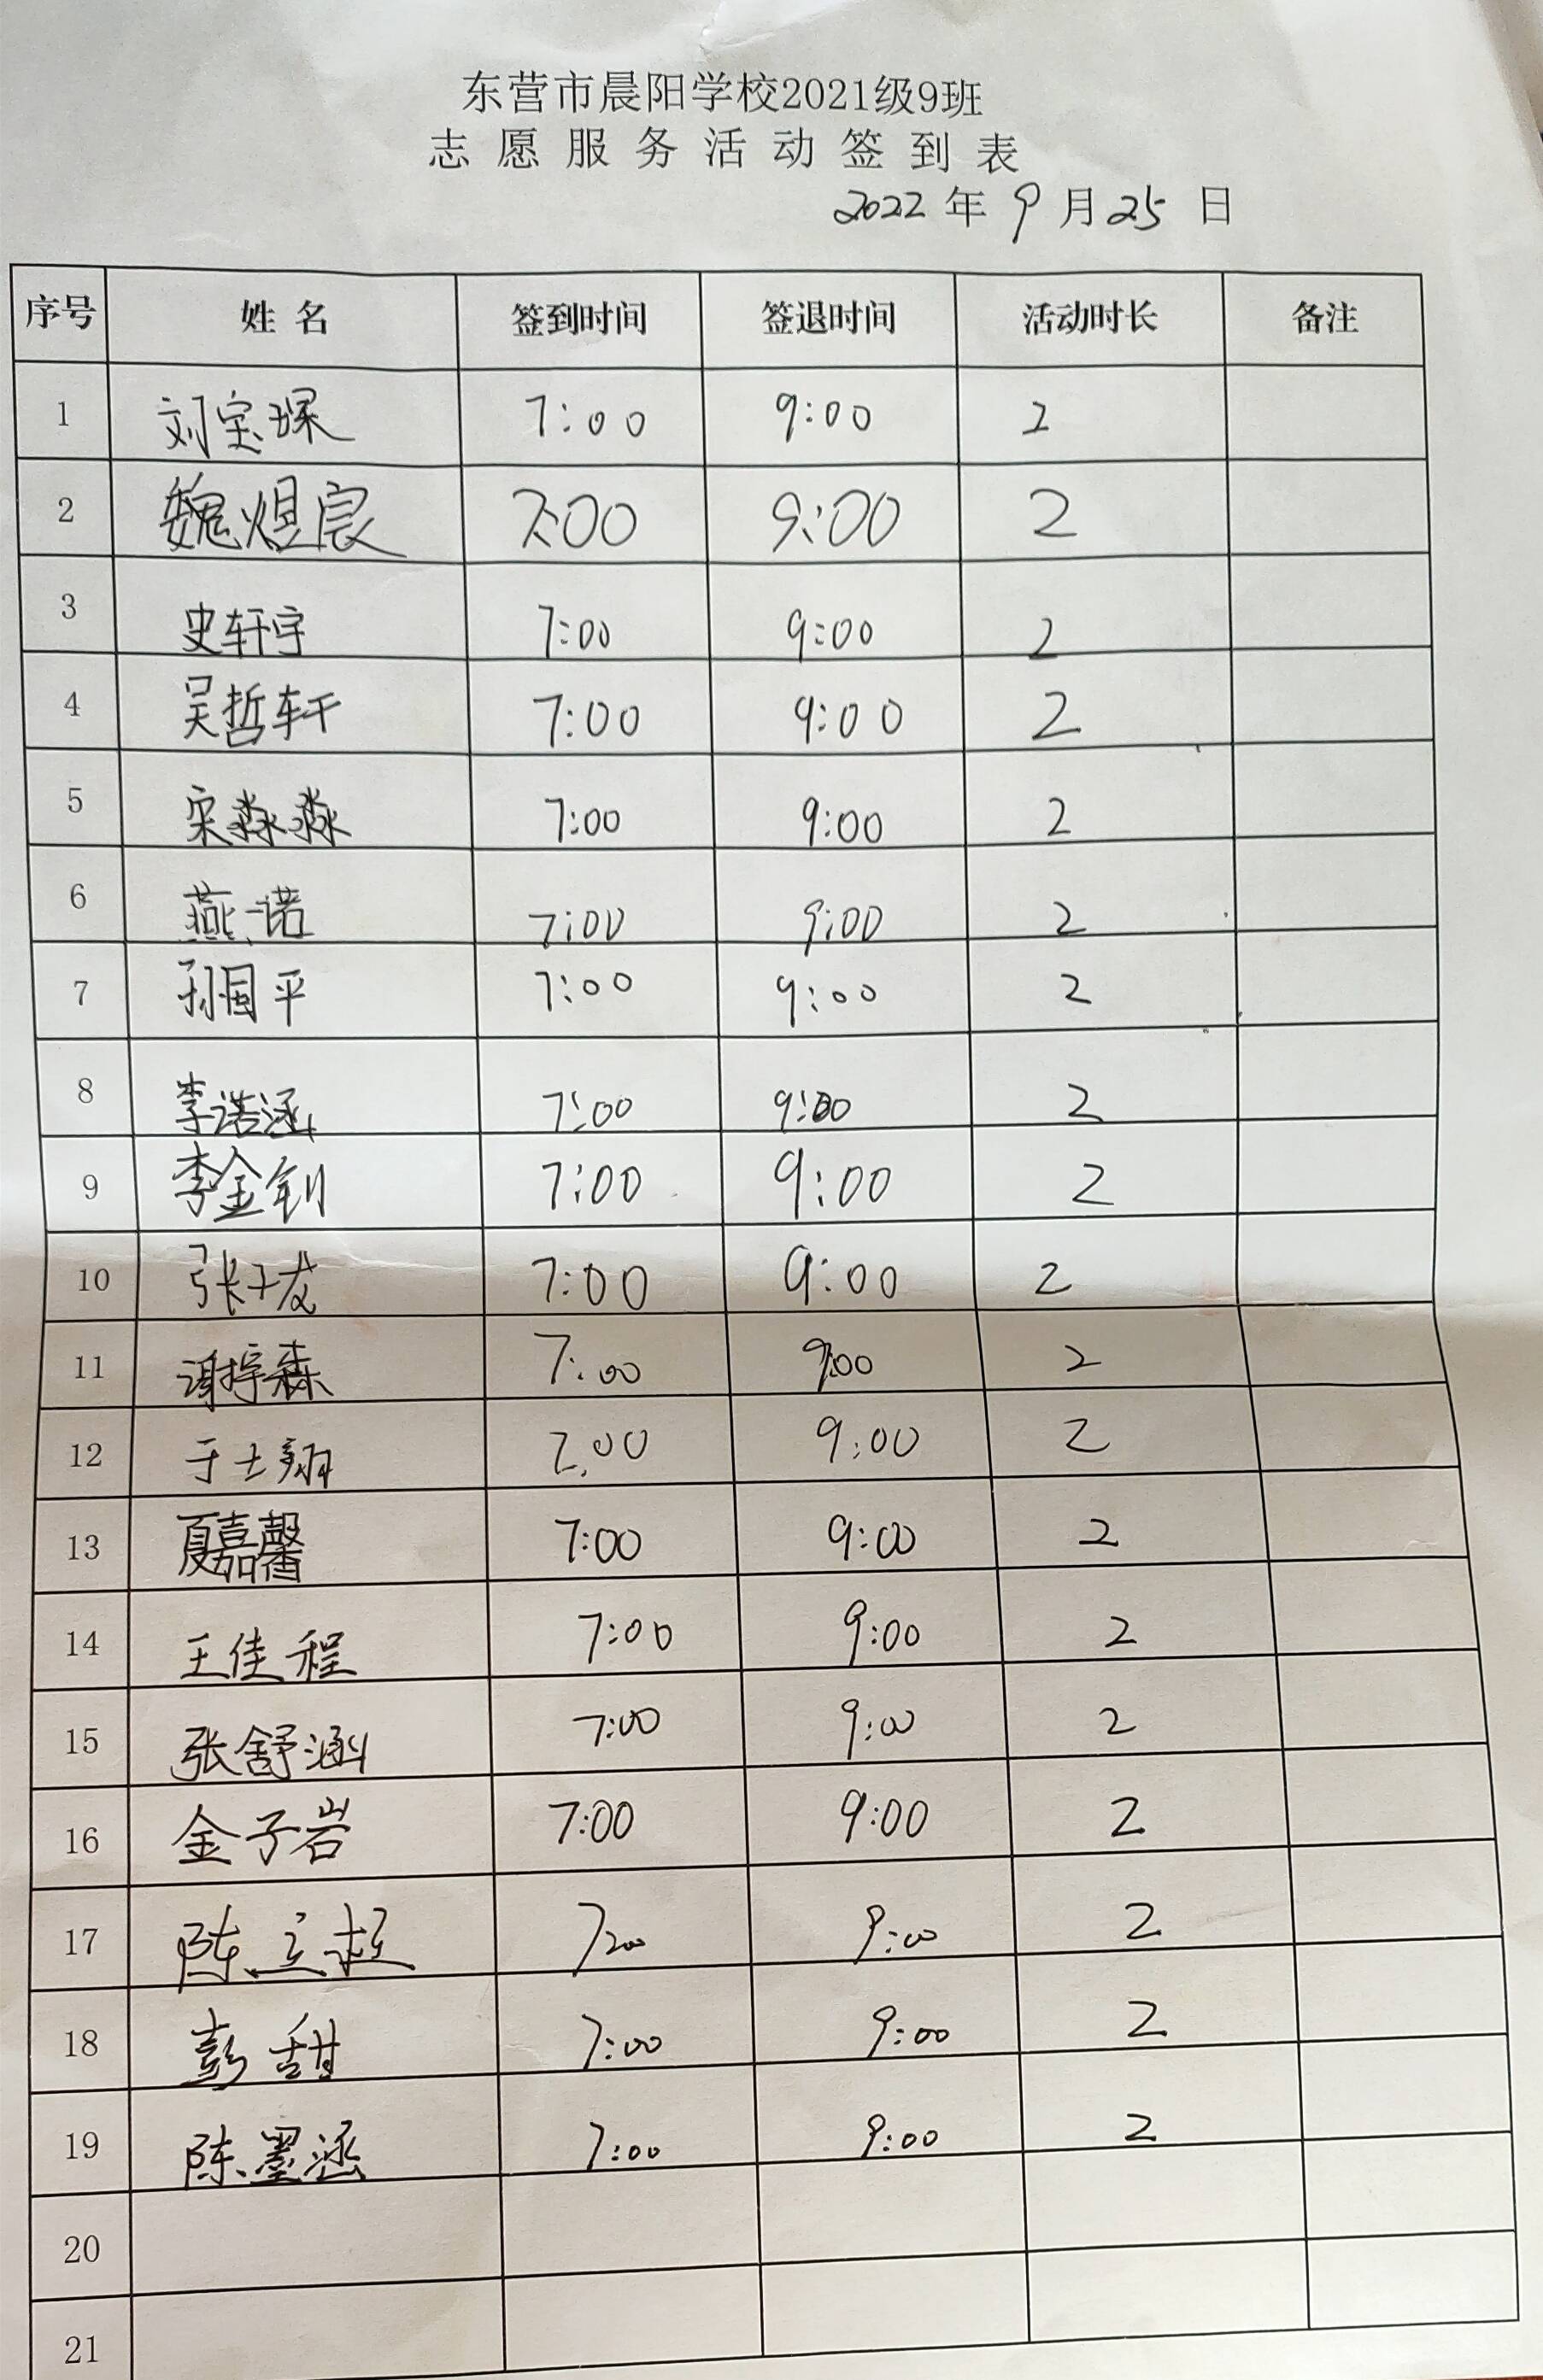 东营市晨阳学校2021级9班
志愿服务活动签到表
2022年9月25日
序号 姓名 签到时间 签退时间 活动时长 备注
1 刘宝琛 7:00 9:00 2
2 魏煜宸 7:00 9:00 2
3 史轩宇 7:00 9:00 2
4 吴哲轩 7:00 9:00 2
5 宋淼淼 7:00 9:00 2
6 燕诺 7:00 9:00 2
7 孙国平 7:00 9:00 2
8 李诺涵 7:00 9:00 2
9 李金钊 7:00 9:00 2
10 张 7:00 9:00 2
11 谢梓森 7:00 9:00 2
12 于士翔 7:00 9:00 2
13 夏嘉馨 7:00 9:00 2
14 王佳程 7:00 9:00 2
15 张舒涵 7:00 9:00 2
16 金子岩 7:00 9:00 2
17 陈立 7:00 9:00 2
18 彭甜 7:00 9:00 2
19 陈墨涵 7:00 9:00 2
20
21